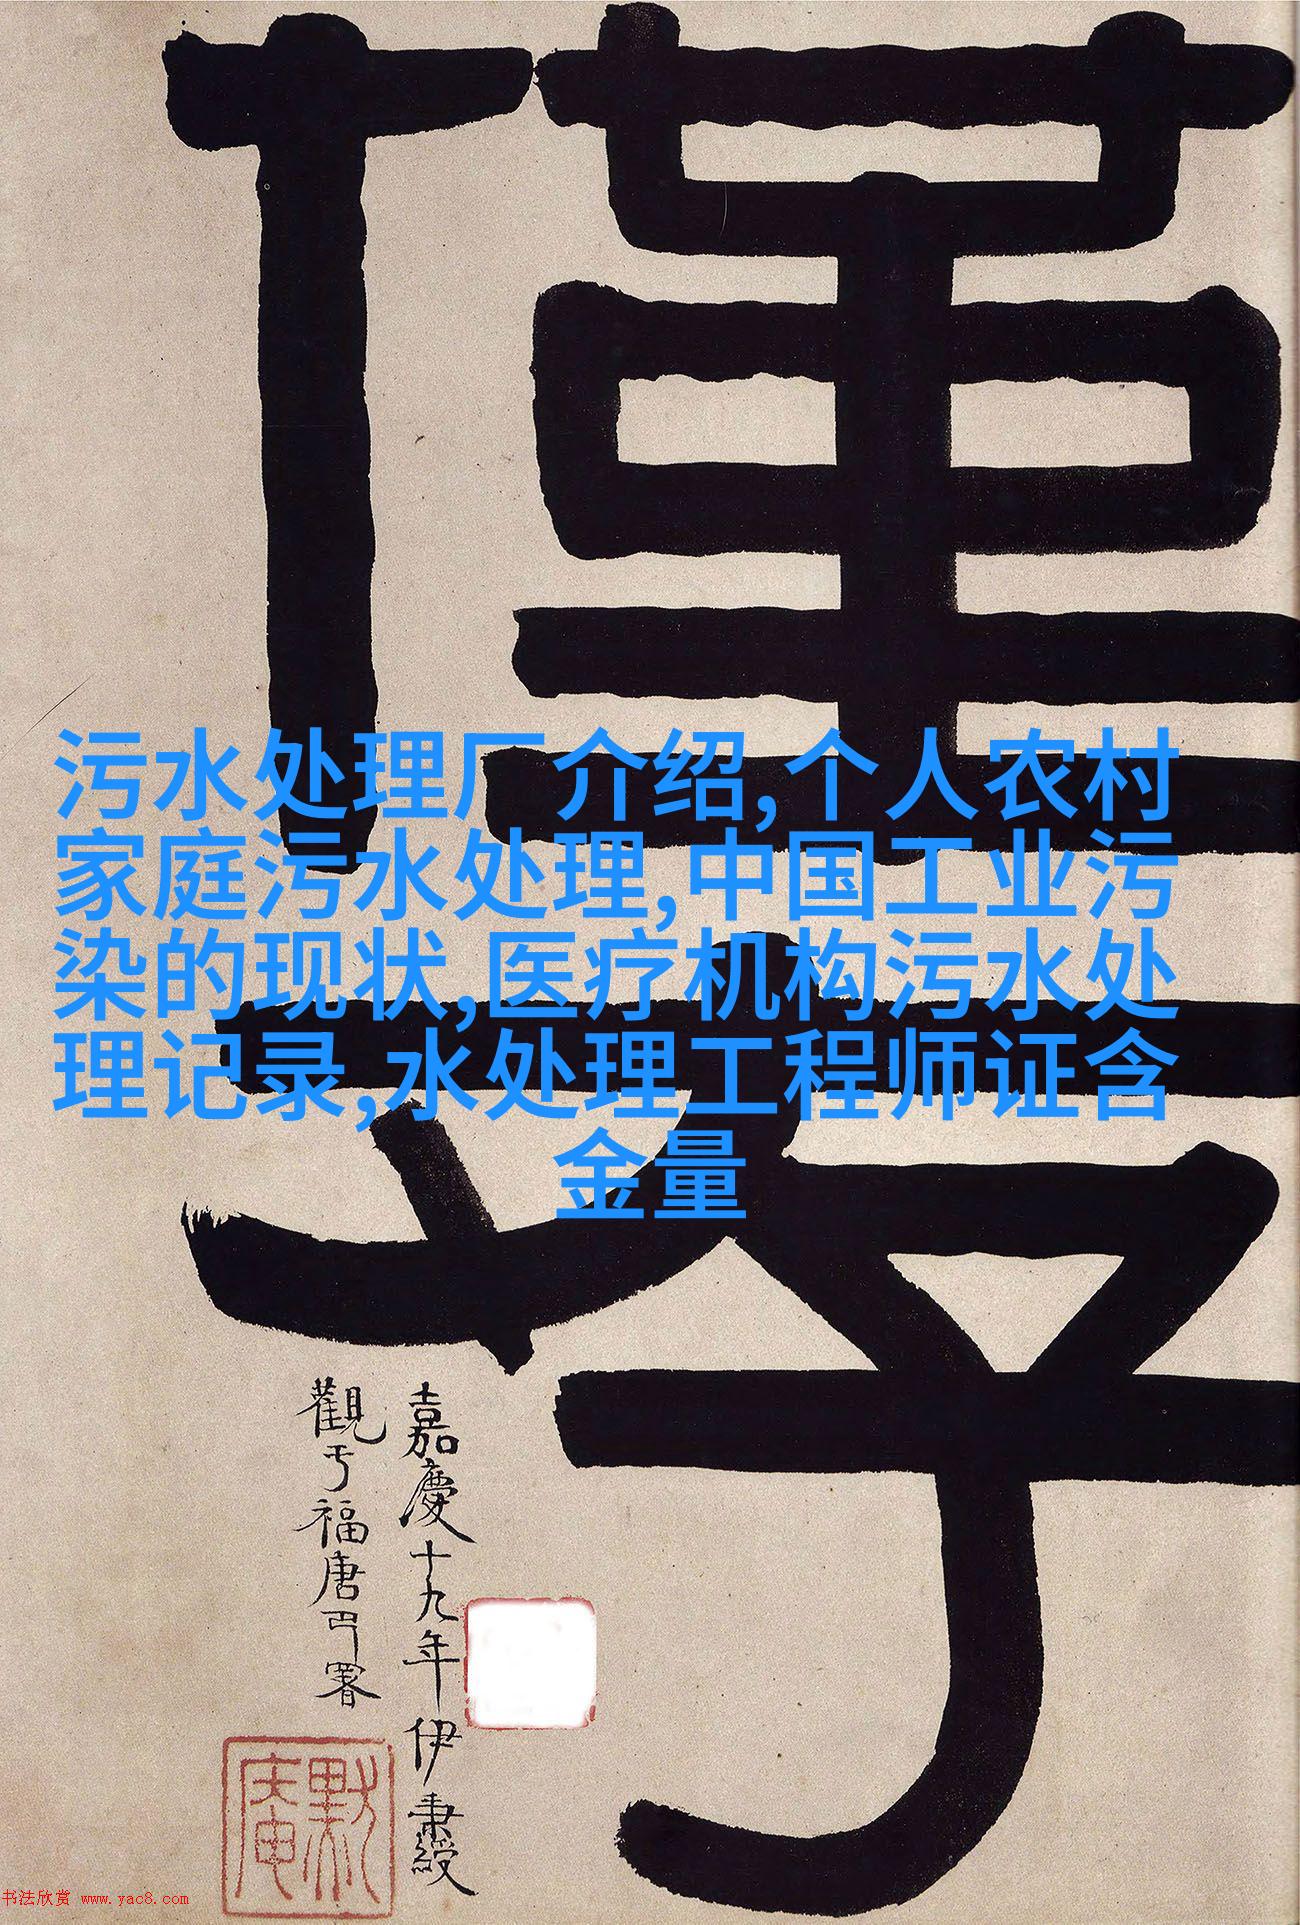 污水处理厂介绍,个人农村
家庭污水处理,中国工业污
染的现状,医疗机构污水处
理记录,水处理工程师证含
金量
嘉慶十九年伊秉綬
觀于福唐署
默庵
书法欣赏 www.yac8.com